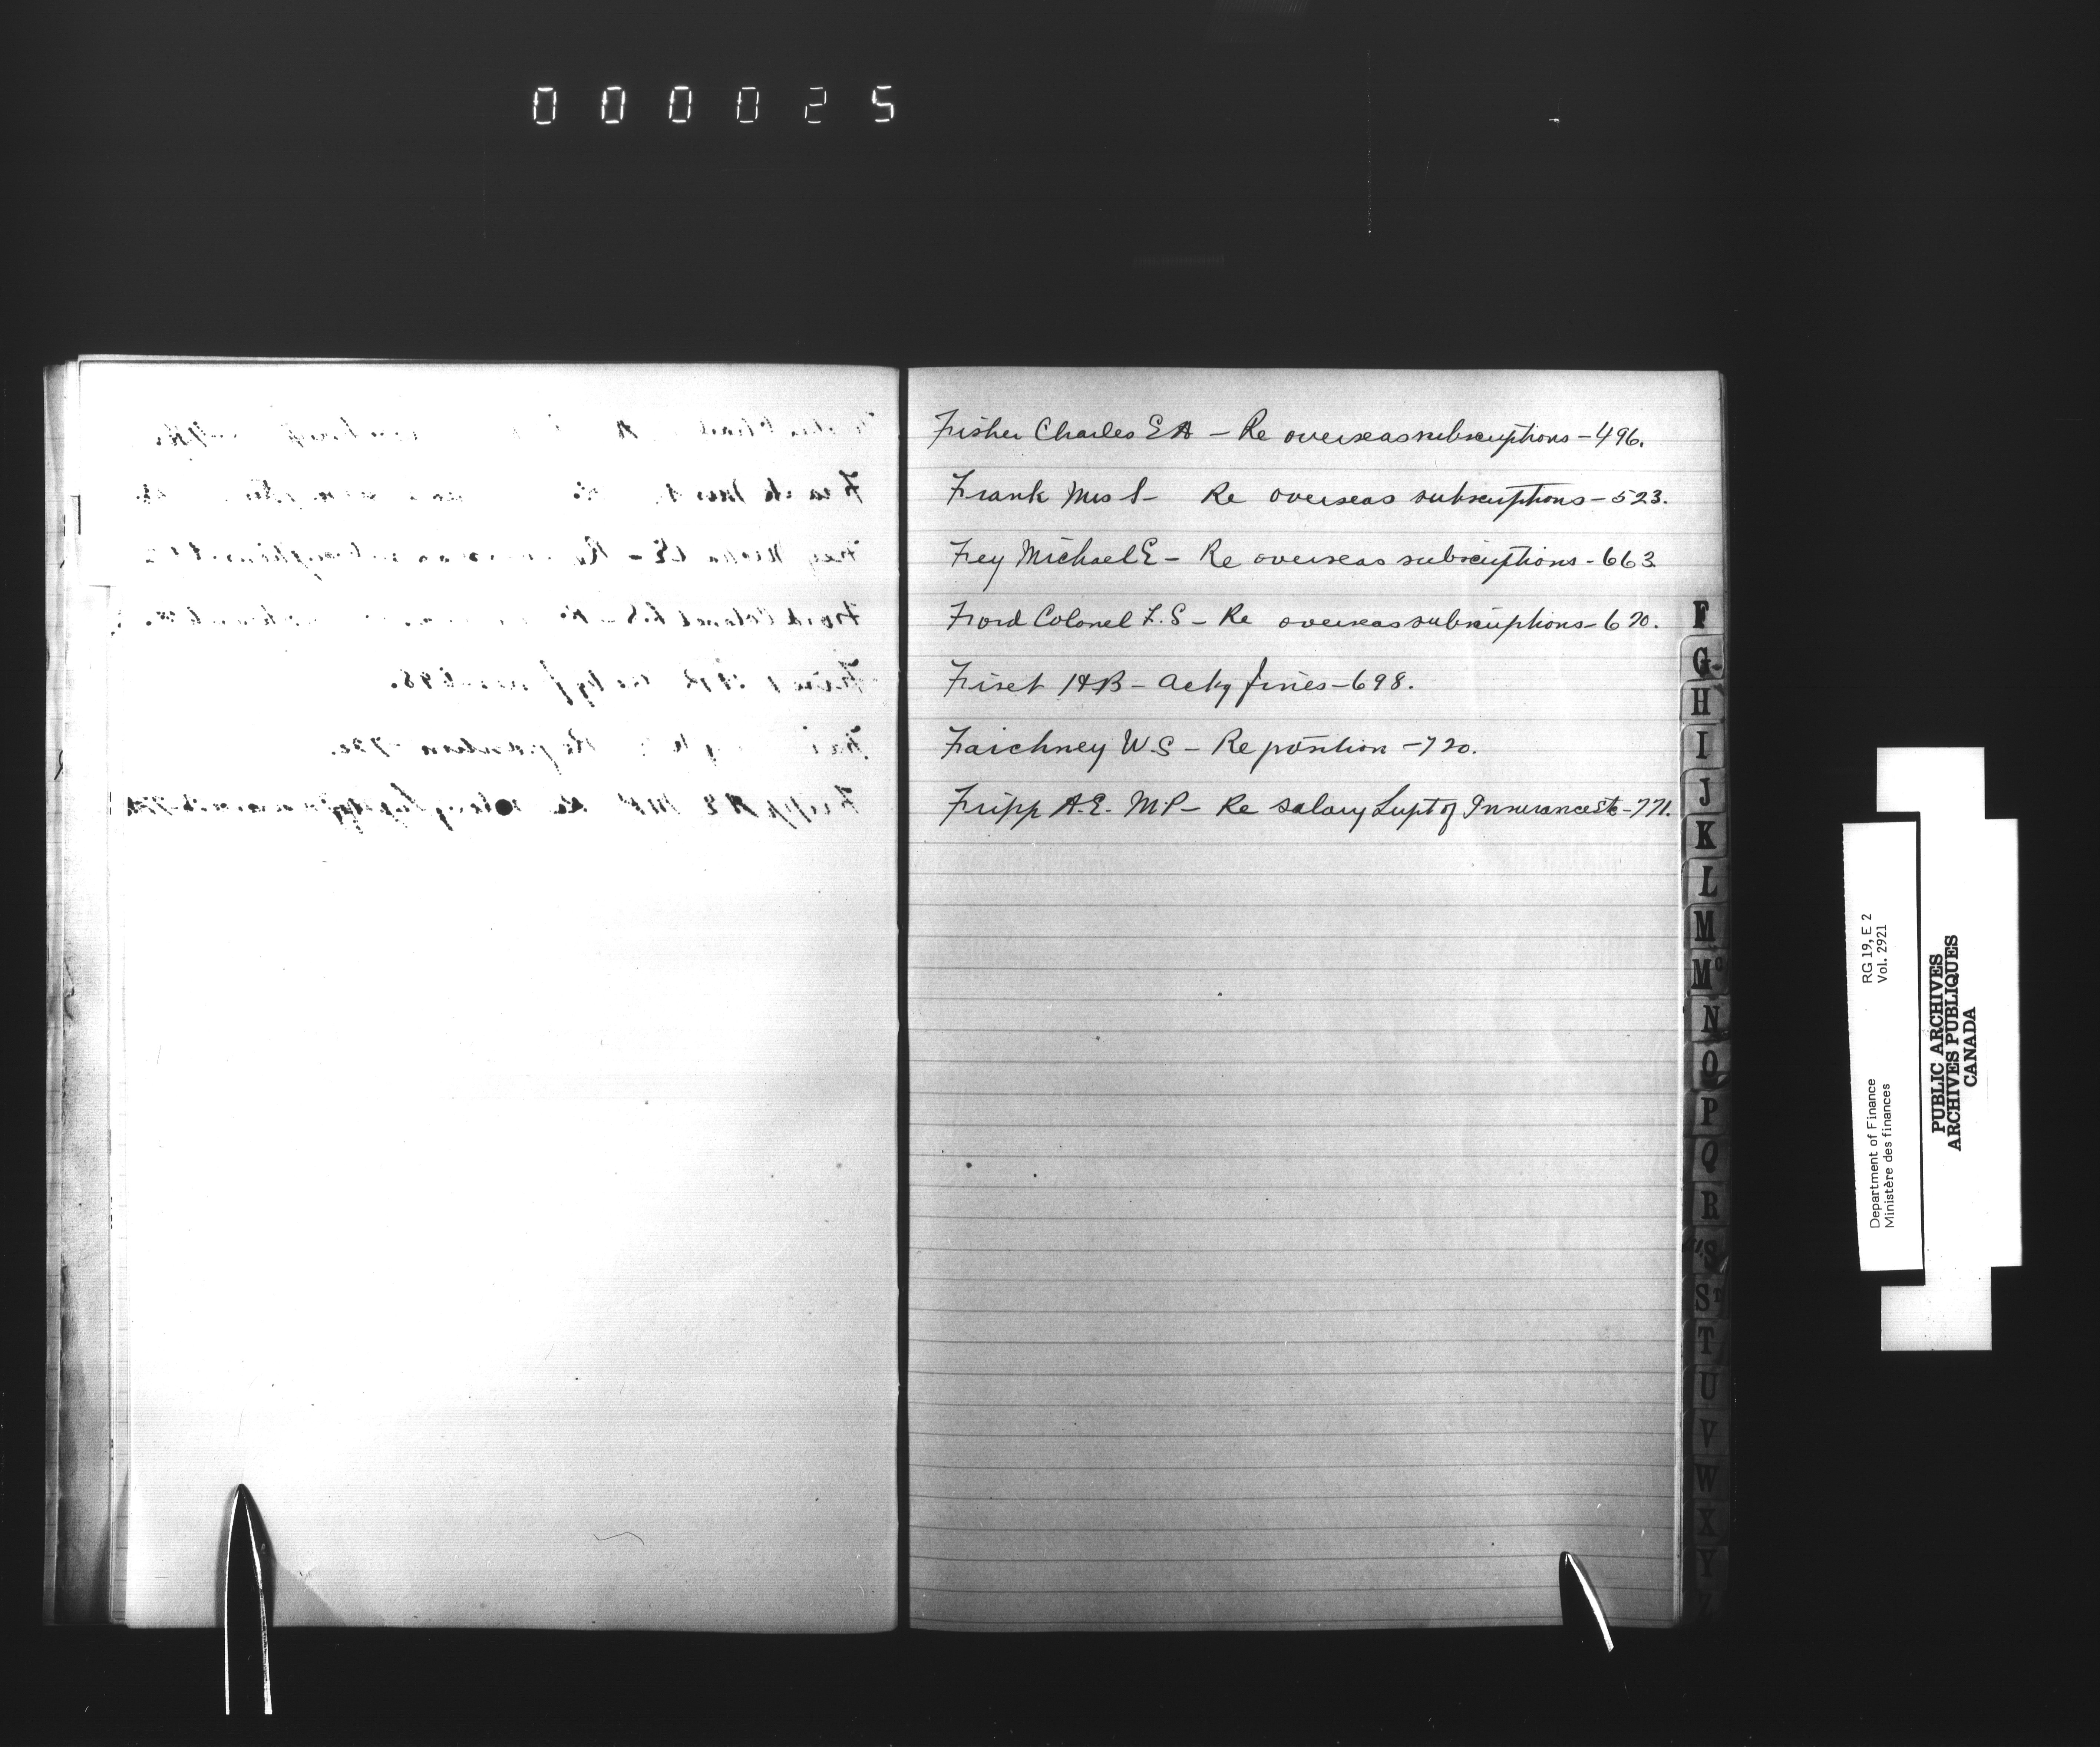 000025
Fisher Charles E A - Re overseas subscriptions - 496.
Frank Mrs S - Re overseas subscriptions - 523.
Frey Michael E - Re overseas subscriptions - 663
Ford Colonel F.S - Re overseas subscriptions - 670.
Fiset H B - Ackg fines - 698.
Faichney W.S - Re position - 720.
Fripp A.E. M.P - Re salary Supt of Insurance etc - 771.
F
G
H
I
J
K
L
M
Mc
N
O
P
Q
R
S
St
T
U
V
W
X
Y
Z
RG 19, E 2
Vol. 2921
Department of Finance
Ministère des finances
PUBLIC ARCHIVES
ARCHIVES PUBLIQUES
CANADA